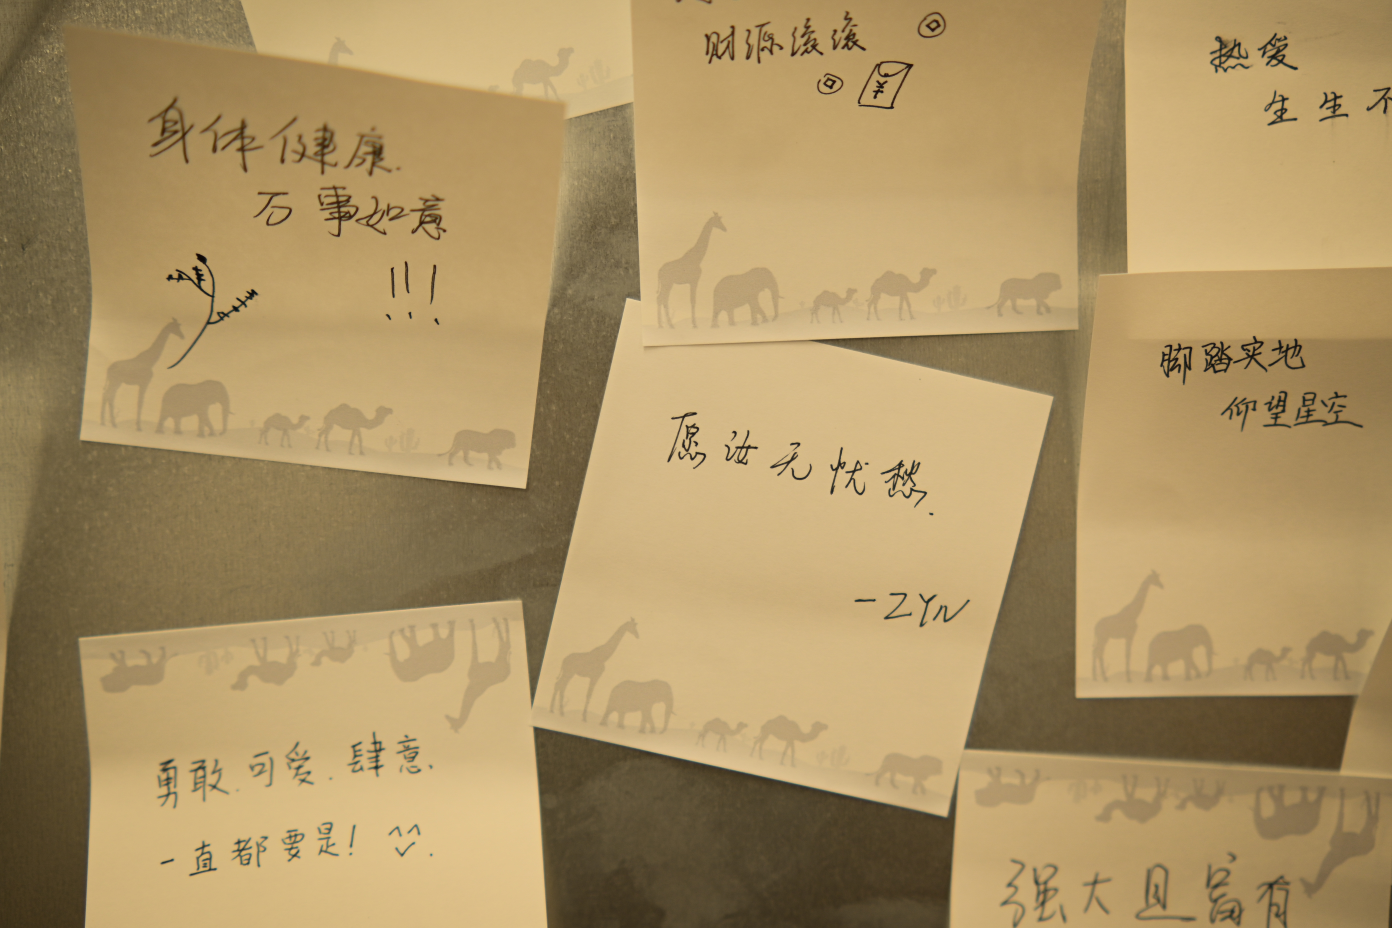 身体健康.
万事如意
!!!
财源滚滚
¥
热爱
生生不
脚踏实地
仰望星空
愿汝无忧愁.
-ZYN
勇敢.可爱.肆意.
一直都要是!
强大且富有